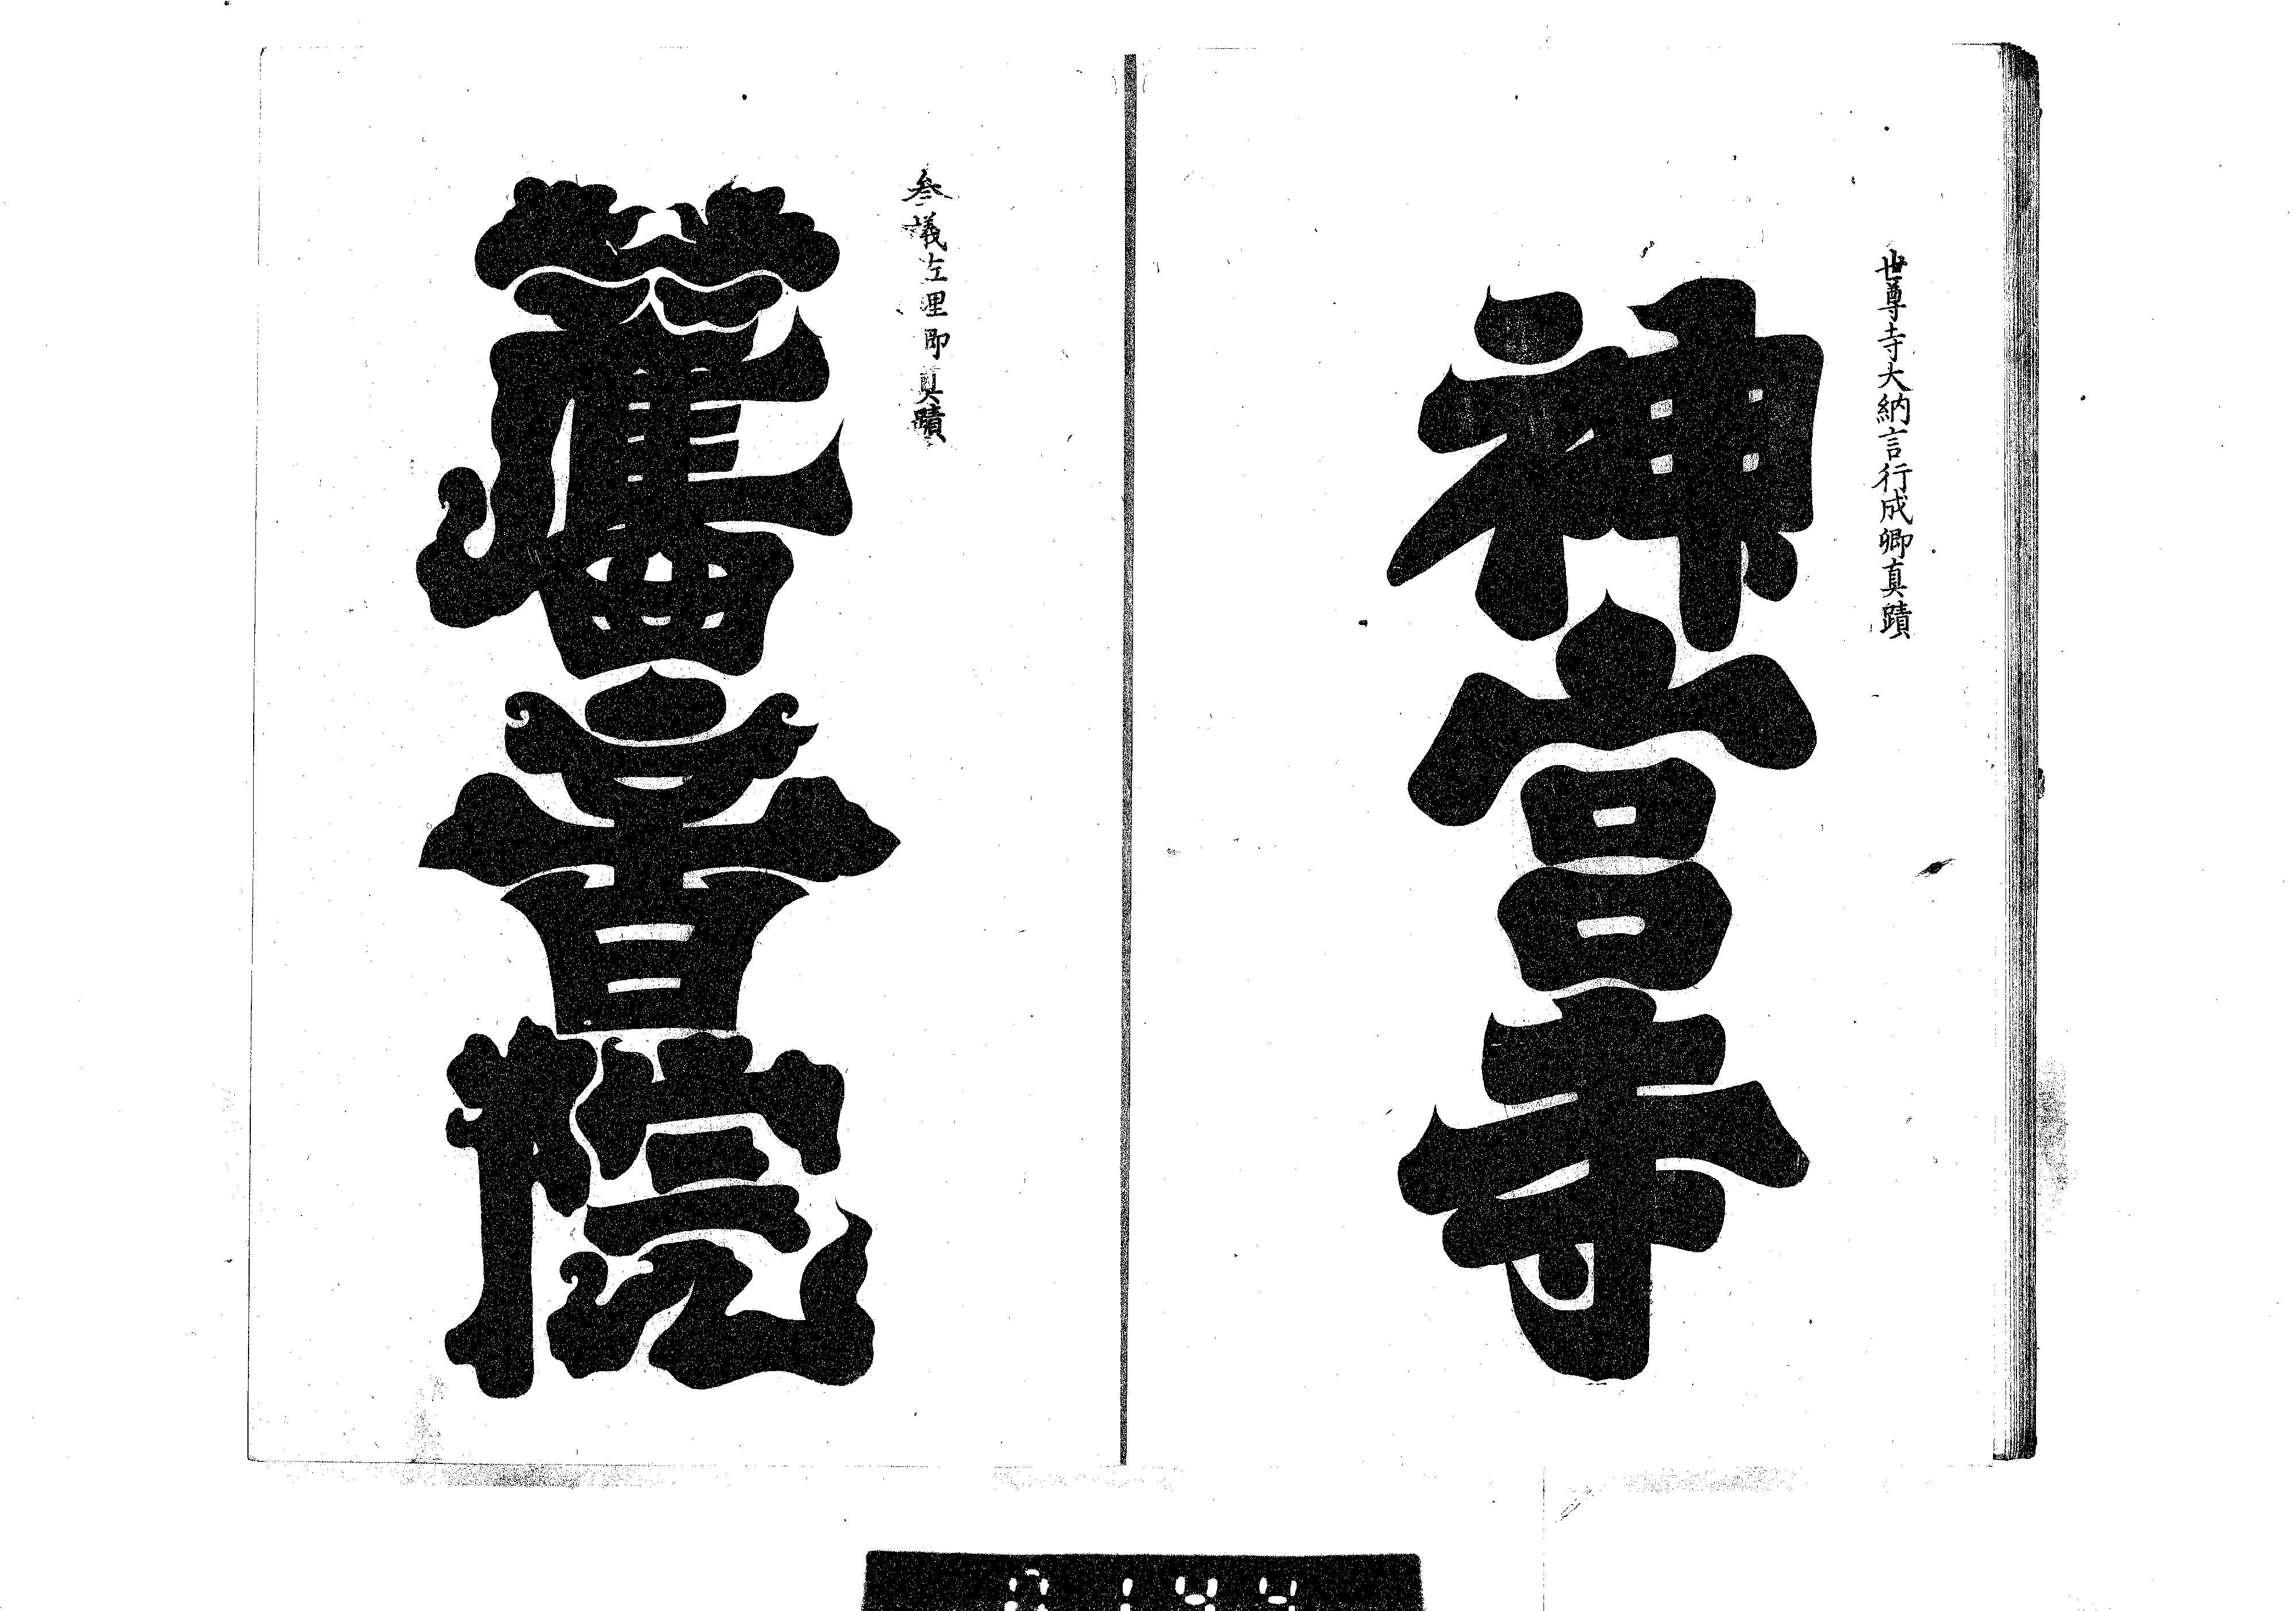 世尊寺大納言行成卿真蹟
神宮寺
叅議左理卿真蹟
音院
0144